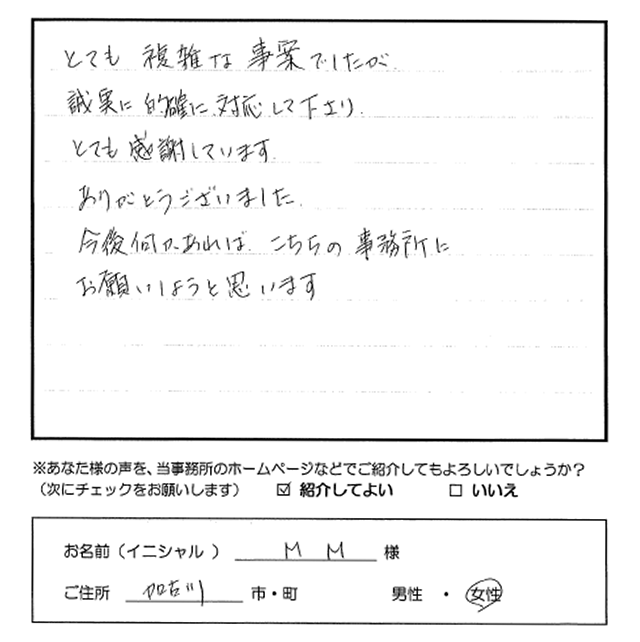 とても 複雑な 事案でしたが
誠実に 的確に 対応して下さり
とても 感謝しています
ありがとうございました.
今後何かあれば こちらの 事務所に
お願いしようと 思います
※あなた様の声を、当事務所のホームページなどでご紹介してもよろしいでしょうか？
（次にチェックをお願いします） ☑ 紹介してよい □ いいえ
お名前（イニシャル ） M M 様
ご住所 加古川 市・町 男性 ・ 女性